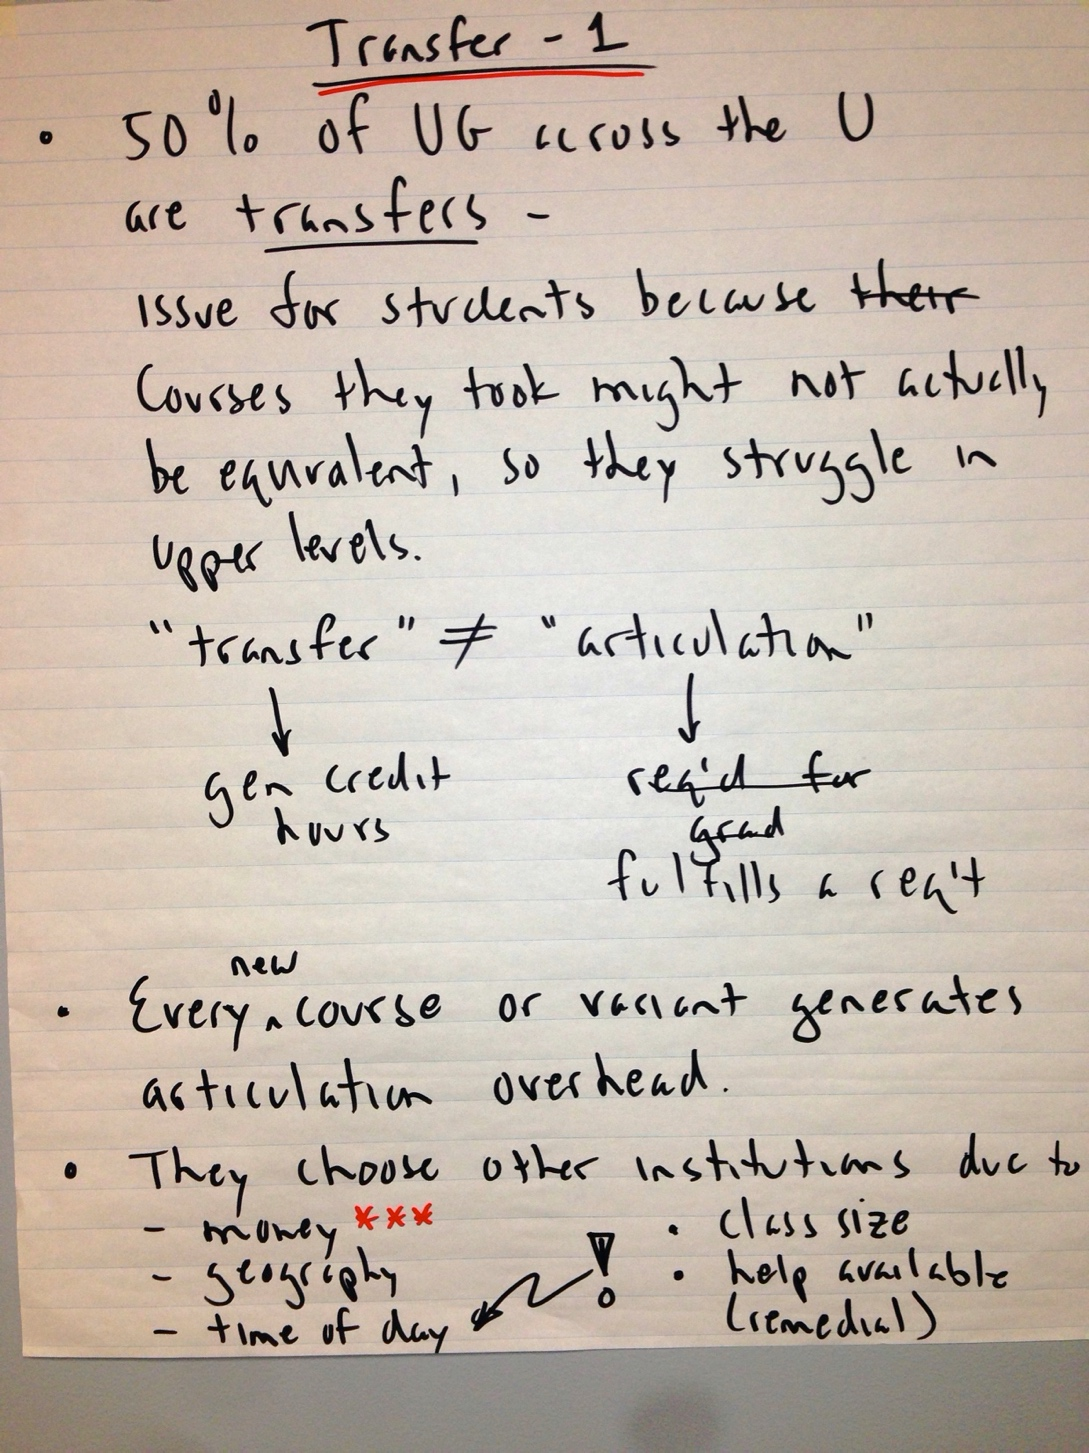 Transfer - 1
• 50% of UG across the U
are transfers -
issue for students because their
Courses they took might not actually
be equivalent, so they struggle in
upper levels.
"transfer" ≠ "articulation"
↓ ↓
gen credit req'd for
hours grad
fulfills a req't
new
• Every ^ course or variant generates
articulation overhead.
• They choose other institutions due to
- money *** • class size
- geography ! • help available
- time of day (remedial)